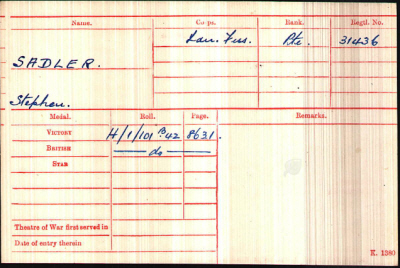 Name. Corps. Rank. Regtl. No.
Lan. Fus. Pte. 31436
SADLER.
Stephen.
Medal. Roll. Page. Remarks.
VICTORY H/1/101 B42 8631.
BRITISH — do —
STAR
Theatre of War first served in
Date of entry therein
K. 1380